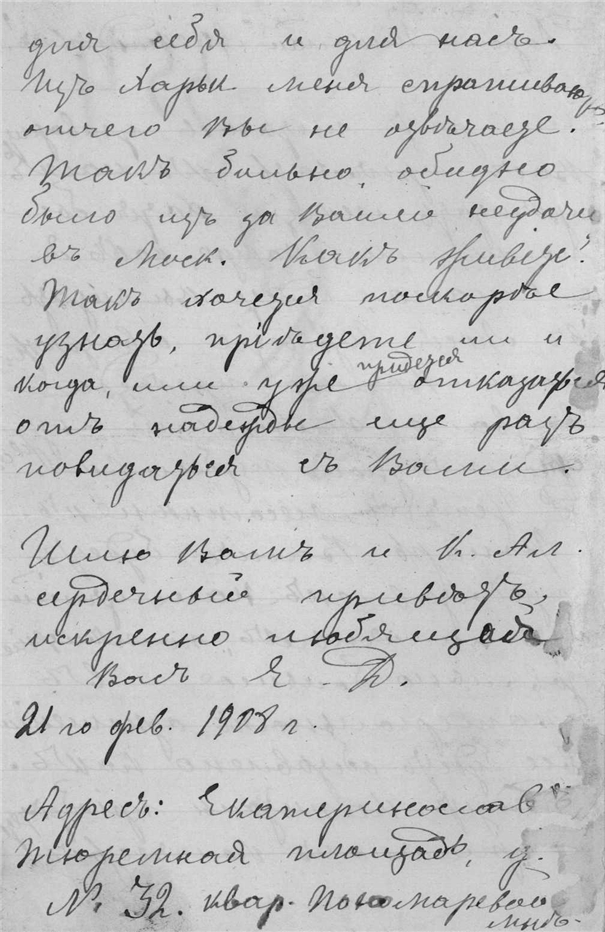 для себя и для насъ.
Изъ Харьк меня спрашиваютъ
отчего Вы не отвѣчаете.
Такъ больно, обидно
было изъ за Вашей неудачи
въ Моск. Какъ живете?
Такъ хочется поскорѣе
узнать, пріѣдете ли и
когда, или уже придется отказаться
отъ надежды еще разъ
повидаться съ Вами.
Шлю Вамъ и К. Ал.
сердечный привѣтъ,
искренно любящая
Васъ Е. Д.
21 го фев. 1908 г.
Адресъ: Екатеринослав
Тюремная площадь, д.
№ 32. квар. Пономаревой